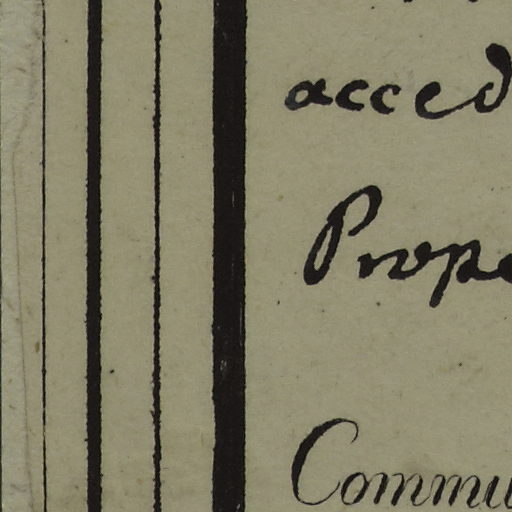 acced
Prope
Commu